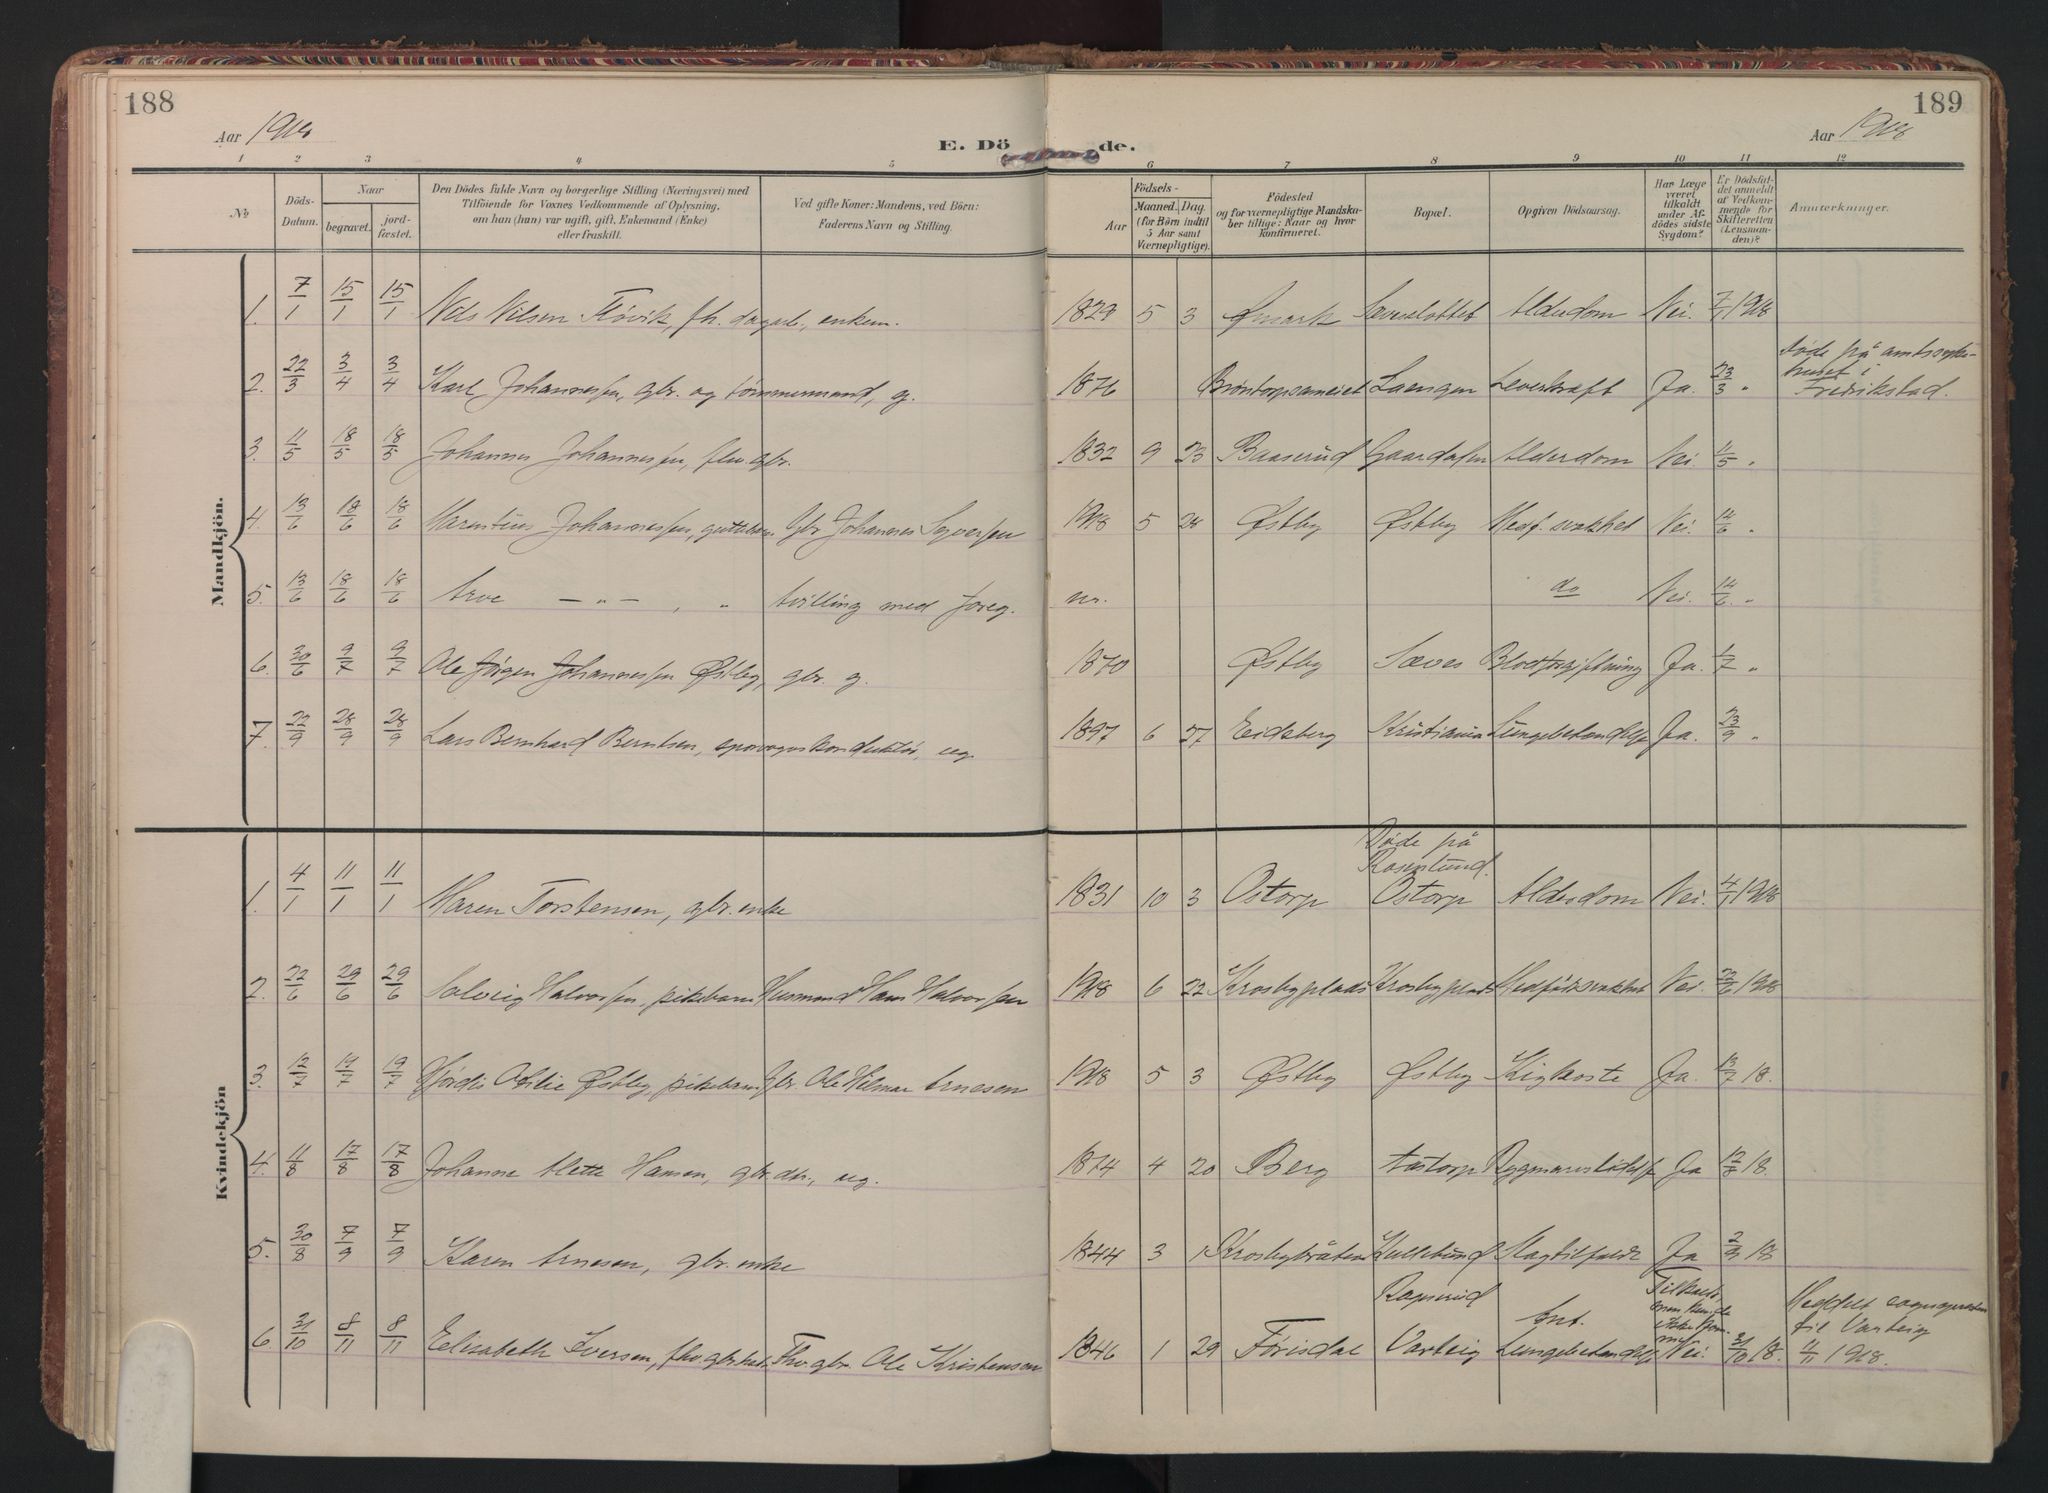 188
189
Aar 1918
E. Dö de.
Aar 1918
1 2 3 4 5 6 7 8 9 10 11 12
No
Döds-Datum.
Naar
begravet.
jord-fæstet.
Den Dödes fulde Navn og borgerlige Stilling (Næringsvei) med
Tilföiende for Voxnes Vedkommende af Oplysning,
om han (hun) var ugift, gift, Enkemand (Enke)
eller fraskilt.
Ved gifte Koner: Mandens, ved Börn:
Faderens Navn og Stilling.
Födsels-
Aar
Maaned. Dag.
(for Börn indtil
5 Aar samt
Værnepligtige).
Födested
og for værnepligtige Mandska-
ber tillige: Naar og hvor
konfirmeret.
Bopæl.
Opgiven Dödsaarsag.
Har Læge
været
tilkaldt
under Af-
dödes sidste
Sygdom?
Er Dödsfal-
det anmeldt
af Vedkom-
mende for
Skifteretten
(Lensman-
den)?
Anmærkninger.
Mandkjön.
1. 7/1 15/1 15/1 Nils Nilsen Fløvik, fh. dagarb., enkem. 1829 5 3 Ømark Alderdom Nei. 7/1 1918
2. 22/3 3/4 3/4 Karl Johannessen, gbr. og tømmermand, g. 1876 Brøntorpsameiet Laengen Leverkræft Ja. 23/3 " Døde på amtssyke-
huset i
Fredrikstad.
3. 11/5 18/5 18/5 Johannes Johannessen, flv. gbr. 1832 9 23 Baaserud Gaardasen Alderdom Nei. 11/5 "
4. 13/6 18/6 18/6 Marentius Johannessen, guttebarn Gbr. Johannes Syversen 1918 5 28 Østby Østby Medf. svakhet Nei. 14/6 "
5. 13/6 18/6 18/6 Arve — " — , " tvilling med foreg. nr. do Nei. 14/6 "
6. 30/6 9/7 9/7 Ole Jørgen Johannessen Østby, gbr. g. 1870 Østby Sæves Blodforgiftning Ja. 1/7 "
7. 22/9 28/9 28/9 Lars Bernhard Berntsen, sporvogskonduktør, ug. 1897 6 27 Eidsberg Kristiania Lungebetændelse Ja. 23/9 "
Kvindekjön
Døde på
Rosenlund.
1. 4/1 11/1 11/1 Maren Torstensen, gbr. enke 1831 10 3 Ostorp Ostorp Alderdom Nei. 4/1 1918
2. 22/6 29/6 29/6 Solveig Halvorsen, pikebarn Husmand Hans Halvorsen 1918 6 22 Krosbyplads Krosbyplads Medfødt svakhet Nei. 22/6 1918
3. 12/7 19/7 19/7 Hjørdis Otilie Østby, pikebarn Gbr. Ole Hilmar Arnesen 1918 5 3 Østby Østby Kighoste Ja. 13/7 18.
4. 11/8 17/8 17/8 Johanne Alette Hansen, gbr. dtr., ug. 1874 4 20 Berg Aastorp Ja 12/8 18.
5. 30/8 7/9 7/9 Karen Arnesen, gbr. enke 1844 3 1 Krosbybråten Kullebund Slagtilfælde Ja 2/9 18
6. 31/10 8/11 8/11 Elisabeth Iversen, fhv. gbr. kone Fhv. gbr. Ole Kristensen 1846 1 29 Førisdal Rapserud
Varteig Ant.
Lungebetændelse Tilkaldt,
men kunde
ikke kom-
me
Nei. 31/10 18. Meddelt sognepresten
til Varteig
11/11 1918.